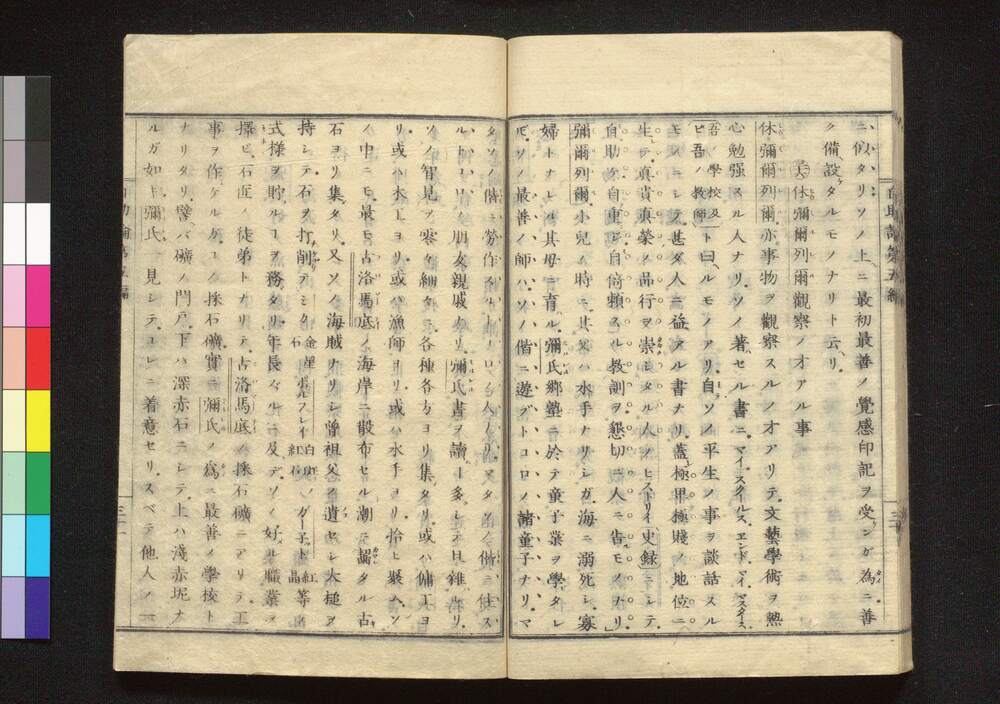 ニ似タリソノ上ニ最初最善ノ覺感印記ヲ受ンガ為ニ善
ク備設タルモノナリト云リ
休彌爾列爾觀察ノオアル事
休彌爾列爾亦事物ヲ觀察スルノオアリテ文藝學術ヲ熱
心勉强スル人ナリソノ著セル書ニマイスクールスエンドマイマスタース
吾ノ學校及ビ吾ノ教師ト曰ルモノアリ自ソノ平生ノ事ヲ談話スル
モノニシテ甚ダ人ニ益アル書ナリ蓋極卑極賤ノ地位ニ
生テ眞貴眞榮ノ品行ヲ崇シタル人ノヒストリイ史録ニシテ
自助ケ自重シ自倚頼スル教訓ヲ懇切ニ人ニ告モノナリ
彌爾列爾小兒ノ時ニ其父ハ水手ナリシガ海ニ溺死シ寡
婦トナレル其母ニ育ル彌氏郷塾ニ於テ童子業ヲ學タレ
ドモソノ最善ノ師ハソノ偕ニ遊ブトコロノ諸童子ナリマ
タソノ偕ニ勞作スルトコロノ人ナリマタソノ偕ニ住ス
ルトコロノ朋友親戚ナリ彌氏書ヲ讀コト多シテ且雜ナリ
ソノ智見ヲ零々細々各種各方ヨリ集タリ或ハ傭工ヨ
リ或ハ木工ヨリ或ハ漁師ヨリ或ハ水手ヨリ拾ヒ聚ムソ
ノ中ニモ最モ古洛馬底ノ海岸ニ散布セル潮ニ齧タル古
石ヨリ集タリ又ソノ海賊ナリシ曾祖父ノ遺セシ大槌ヲ
持シテ石ヲ打削アミカ金星石ポルフレイ白斑紅石ノガーネト紅晶等ノ
式様ヲ貯ルコヲ務タリ年長ズルニ及テソノ好ル職業ヲ
擇ビ石匠ノ徒弟トナリテ古洛馬底ノ採石礦ニアリテ工
事ヲ作ケルガコノ採石礦實ニ彌氏ノ為ニ最善ノ學校ト
ナリタリ譬バ礦ノ門戸下ハ深赤石ニシテ上ハ淺赤坭ナ
ルガ如キ彌氏一見シテコレニ着意セリスベテ他人ノ一